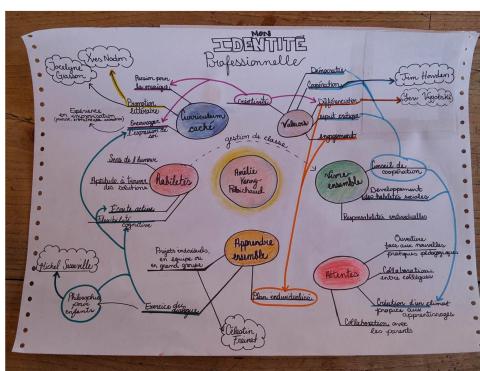 MON
IDENTITÉ
Professionnelle
Yves Nadon
Jocelyne
Giasson
Passion pour
la musique
Promotion
littéraire
Expérience
en improvisation
Encourager
l'expression de
soi
Curriculum
caché
Créativité
Démocratie
Coopération
Différenciation
esprit critique
engagement
Valeurs
Jim Howden
Lev Vygotski
gestion de classe
Sens de l'humour
Aptitude à trouver
des solutions
Écoute active
Flexibilité
cognitive
Habiletés
Amélie
Robichaud
Vivre
ensemble
Conseil de
coopération
Développement
des habiletés sociales
Responsabilités individuelles
Apprendre
ensemble
Projets individuels,
en équipe ou
en grand groupe
Exercice du
dialogue
Plan individualisé
Michel Sasseville
Philosophie
pour
enfants
Célestin
Freinet
Attentes
Ouverture
face aux nouvelles
pratiques pédagogiques
Collaboration
entre collègues
Création d'un climat
propice aux
apprentissages
Collaboration avec
les parents